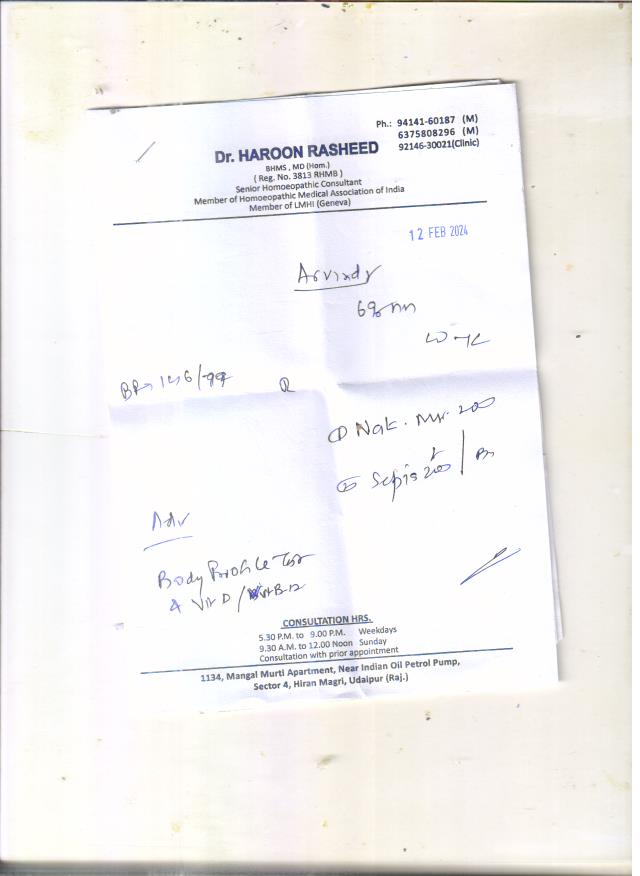 Ph.: 94141-60187 (M)
6375808296 (M)
92146-30021(Clinic)
Dr. HAROON RASHEED
BHMS , MD (Hom.)
( Reg. No. 3813 RHMB )
Senior Homoeopathic Consultant
Member of Homoeopathic Medical Association of India
Member of LMHI (Geneva)
12 FEB 2024
BP
① Nat. Mur. 200
② Sepia 200
Adv
Body Profile Test
Vit D / Vit B-12
CONSULTATION HRS.
5.30 P.M. to 9.00 P.M. Weekdays
9.30 A.M. to 12.00 Noon Sunday
Consultation with prior appointment
1134, Mangal Murti Apartment, Near Indian Oil Petrol Pump,
Sector 4, Hiran Magri, Udaipur (Raj.)